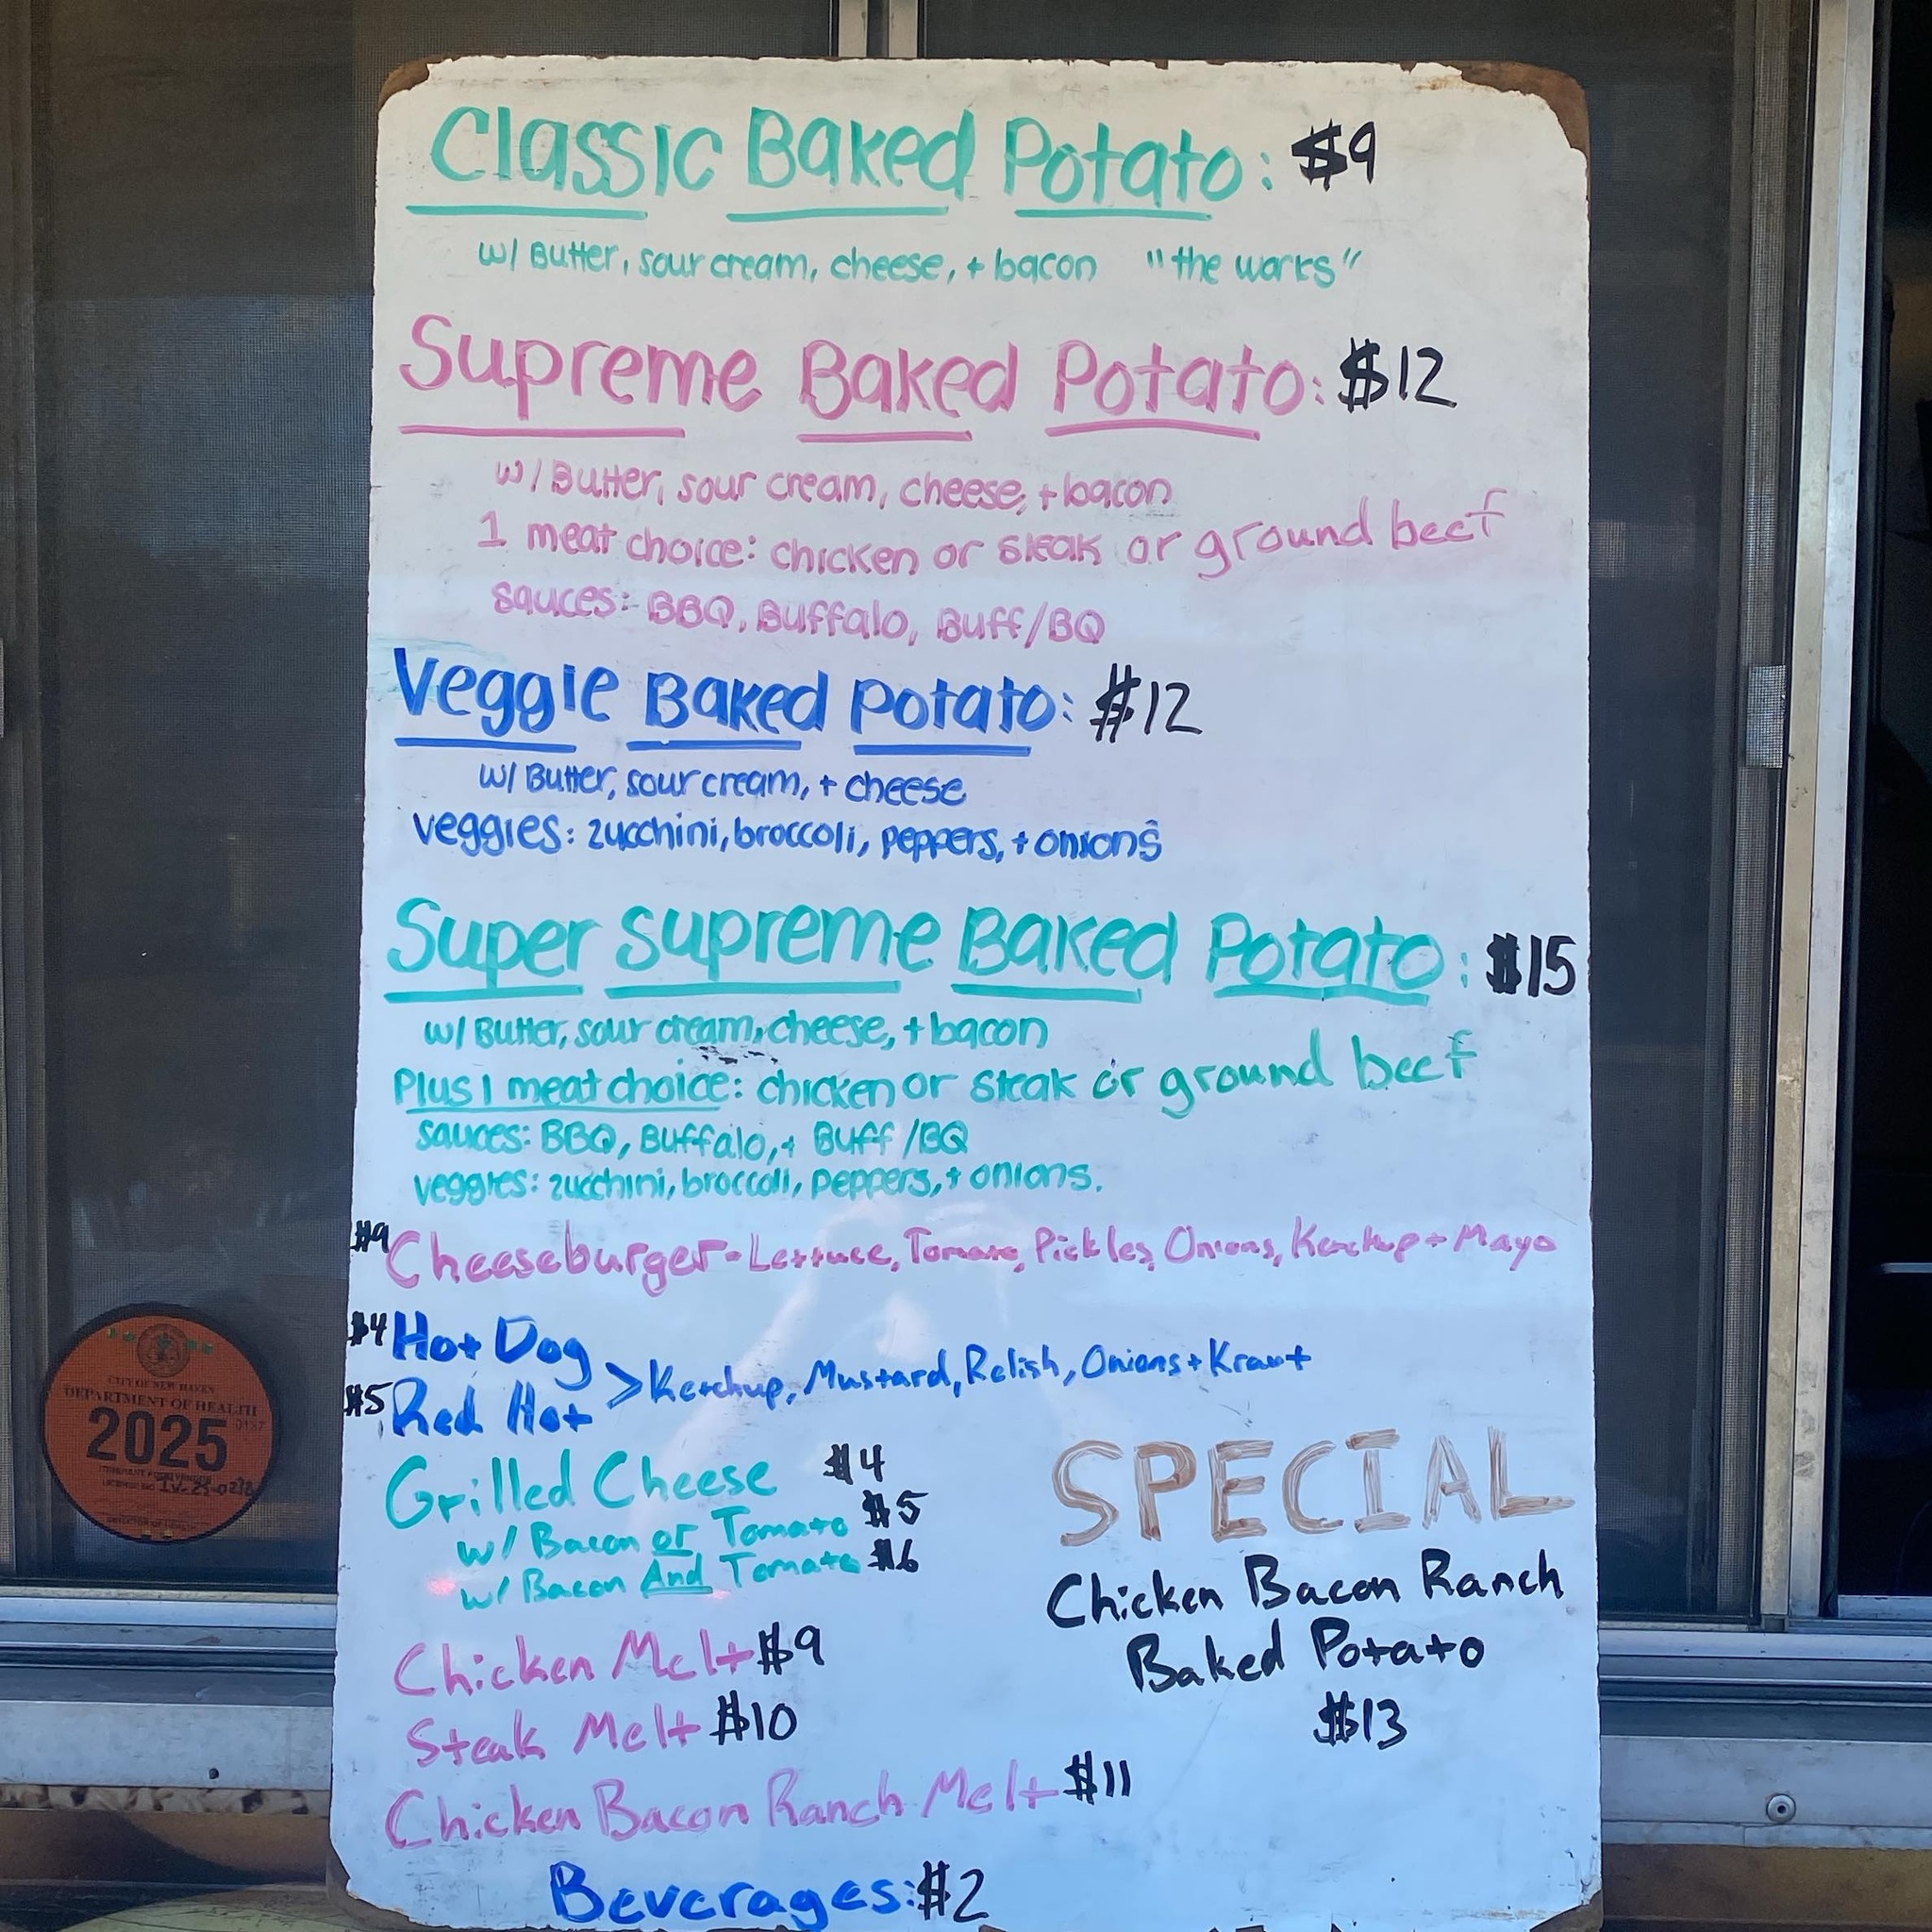 Classic Baked Potato: $9
w/ Butter, sour cream, cheese, + bacon "the works"
Supreme Baked Potato: $12
w/ Butter, sour cream, cheese, + bacon
1 meat choice: chicken or steak or ground beef
sauces: BBQ, Buffalo, Buff/BQ
Veggie Baked Potato: $12
w/ Butter, sour cream, + cheese
veggies: zucchini, broccoli, peppers, + onions
Super supreme Baked Potato: $15
w/ Butter, sour cream, cheese, + bacon
Plus 1 meat choice: chicken or steak or ground beef
sauces: BBQ, Buffalo, + Buff/BQ
veggies: zucchini, broccoli, peppers, + onions.
$9 Cheeseburger - Lettuce, Tomato, Pickles, Onions, Ketchup + Mayo
$4 Hot Dog
$5 Red Hot > Ketchup, Mustard, Relish, Onions + Kraut
Grilled Cheese $4
w/ Bacon or Tomato $5
w/ Bacon And Tomato $6
Chicken Melt $9
Steak Melt $10
Chicken Bacon Ranch Melt $11
Beverages: $2
SPECIAL
Chicken Bacon Ranch
Baked Potato
$13
CITY OF NEW HAVEN
DEPARTMENT OF HEALTH
2025